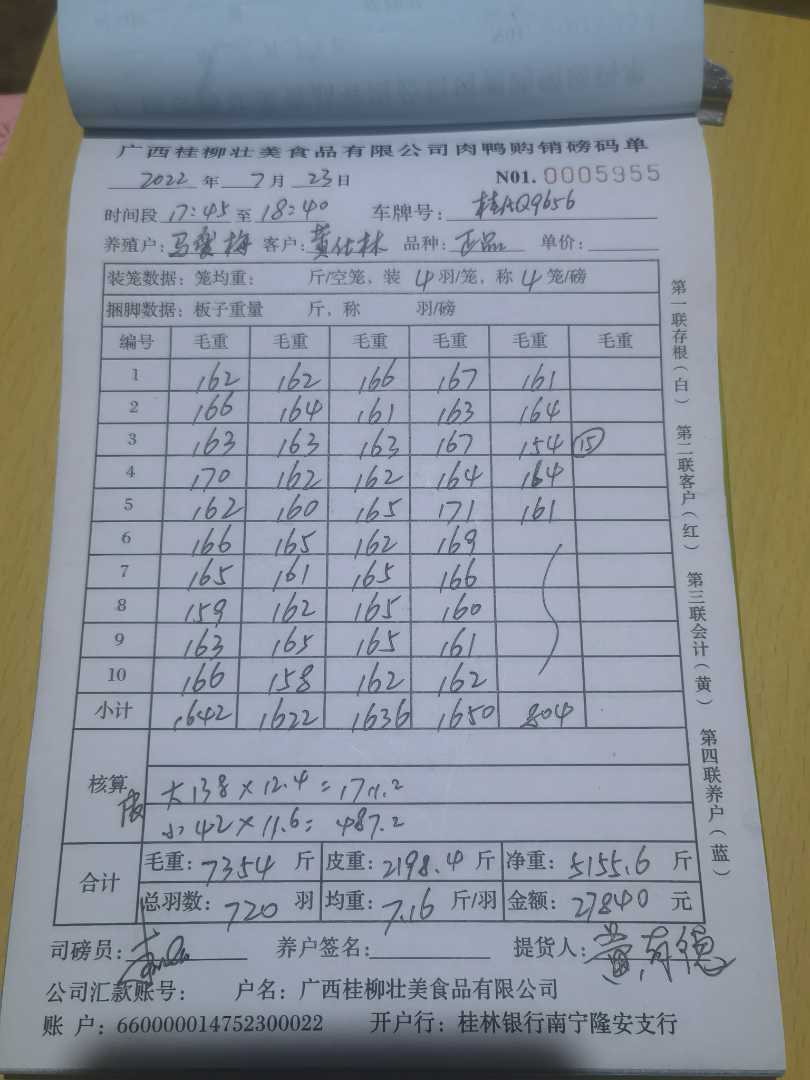 广西桂柳壮美食品有限公司肉鸭购销磅码单
2022 年 7 月 23 日 N01. 0005955
时间段 17:45 至 18:40 车牌号: 桂AQ9656
养殖户: 马 梅 客户: 黄仕林 品种: 正品 单价:
装笼数据: 笼均重: 斤/空笼, 装 4 羽/笼, 称 4 笼/磅
捆脚数据: 板子重量 斤, 称 羽/磅
编号 毛重 毛重 毛重 毛重 毛重 毛重
1 162 162 166 167 161
2 166 164 161 163 164
3 163 163 163 167 154 15
4 170 162 162 164 164
5 162 160 165 171 161
6 166 165 162 169
7 165 161 165 166
8 159 162 165 160
9 163 165 165 161
10 166 158 162 162
小计 1642 1622 1636 1650 804
核算
大 138 × 12.4 = 1711.2
小 42 × 11.6 = 487.2
合计 毛重: 7354 斤 皮重: 2198.4 斤 净重: 5155.6 斤
总羽数: 720 羽 均重: 7.16 斤/羽 金额: 27840 元
司磅员: 养户签名: 提货人: 黄
公司汇款账号: 户名: 广西桂柳壮美食品有限公司
账 户: 660000014752300022 开户行: 桂林银行南宁隆安支行
第一联存根(白) 第二联客户(红) 第三联会计(黄) 第四联养户(蓝)